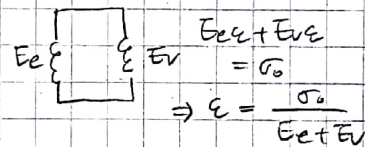 Ee Ev
Eeε + Evε
= σ₀
⇒ ε = σ₀ / (Ee + Ev)